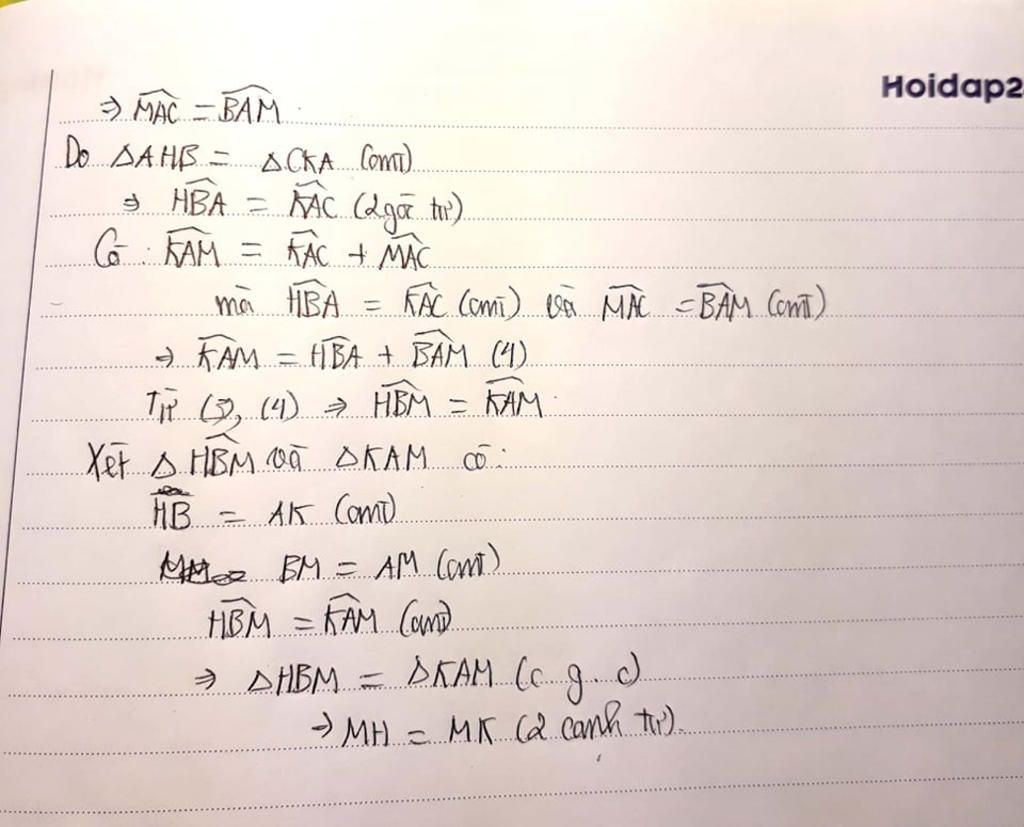 Hoidap2
⇒ \widehat{MAC} = \widehat{BAM}
Do ΔAHB = ΔCKA (cmt)
⇒ \widehat{HBA} = \widehat{KAC} (2 góc tứ)
Có : \widehat{KAM} = \widehat{KAC} + \widehat{MAC}
mà \widehat{HBA} = \widehat{KAC} (cmt) và \widehat{MAC} = \widehat{BAM} (cmt)
⇒ \widehat{KAM} = \widehat{HBA} + \widehat{BAM} (4)
Từ (3), (4) ⇒ \widehat{HBM} = \widehat{KAM}
Xét Δ\widehat{HBM} và ΔKAM có:
HB = AK (cmt)
BM = AM (cmt)
\widehat{HBM} = \widehat{KAM} (cmt)
⇒ ΔHBM = ΔKAM (c g.c)
⇒ MH = MK (2 cạnh tứ).